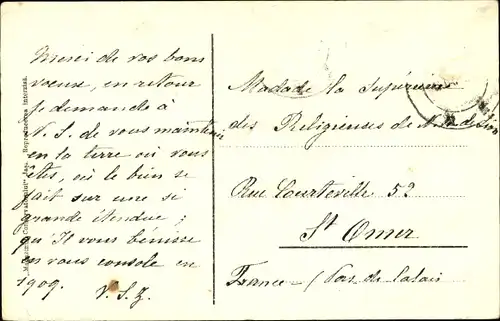 Merci de vos bons
voeux, en retour
je demande à
N. S. de vous maintenir
en la terre où vous
êtes, où le bien se
fait sur une si
grande étendue;
qu'Il vous bénisse
en vous console en
1909.
V. S. Z.
Madade la Supérieure
des Religieuses de
Rue Courteville 52
St Omer
France / Pas de Calais